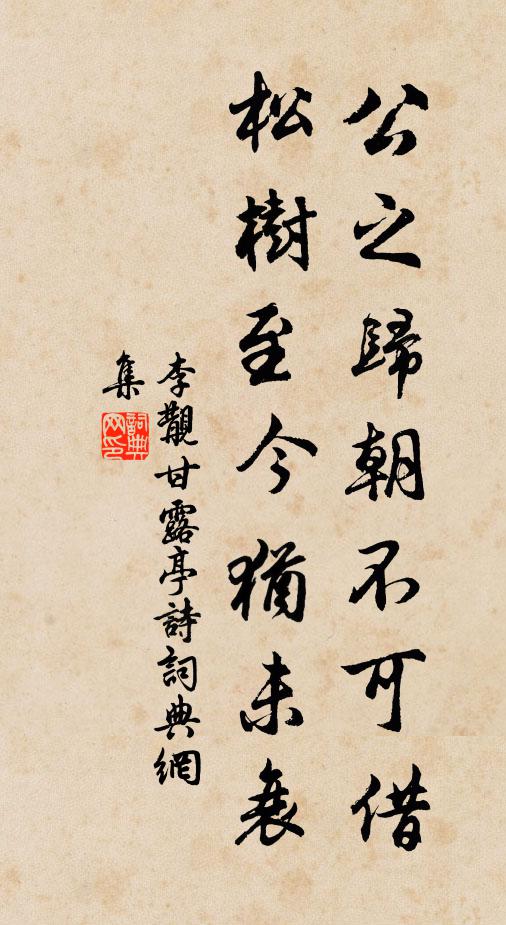 公之歸朝不可借
松樹至今猶未衰
李覯甘露亭詩詞典網
集
詞典網印